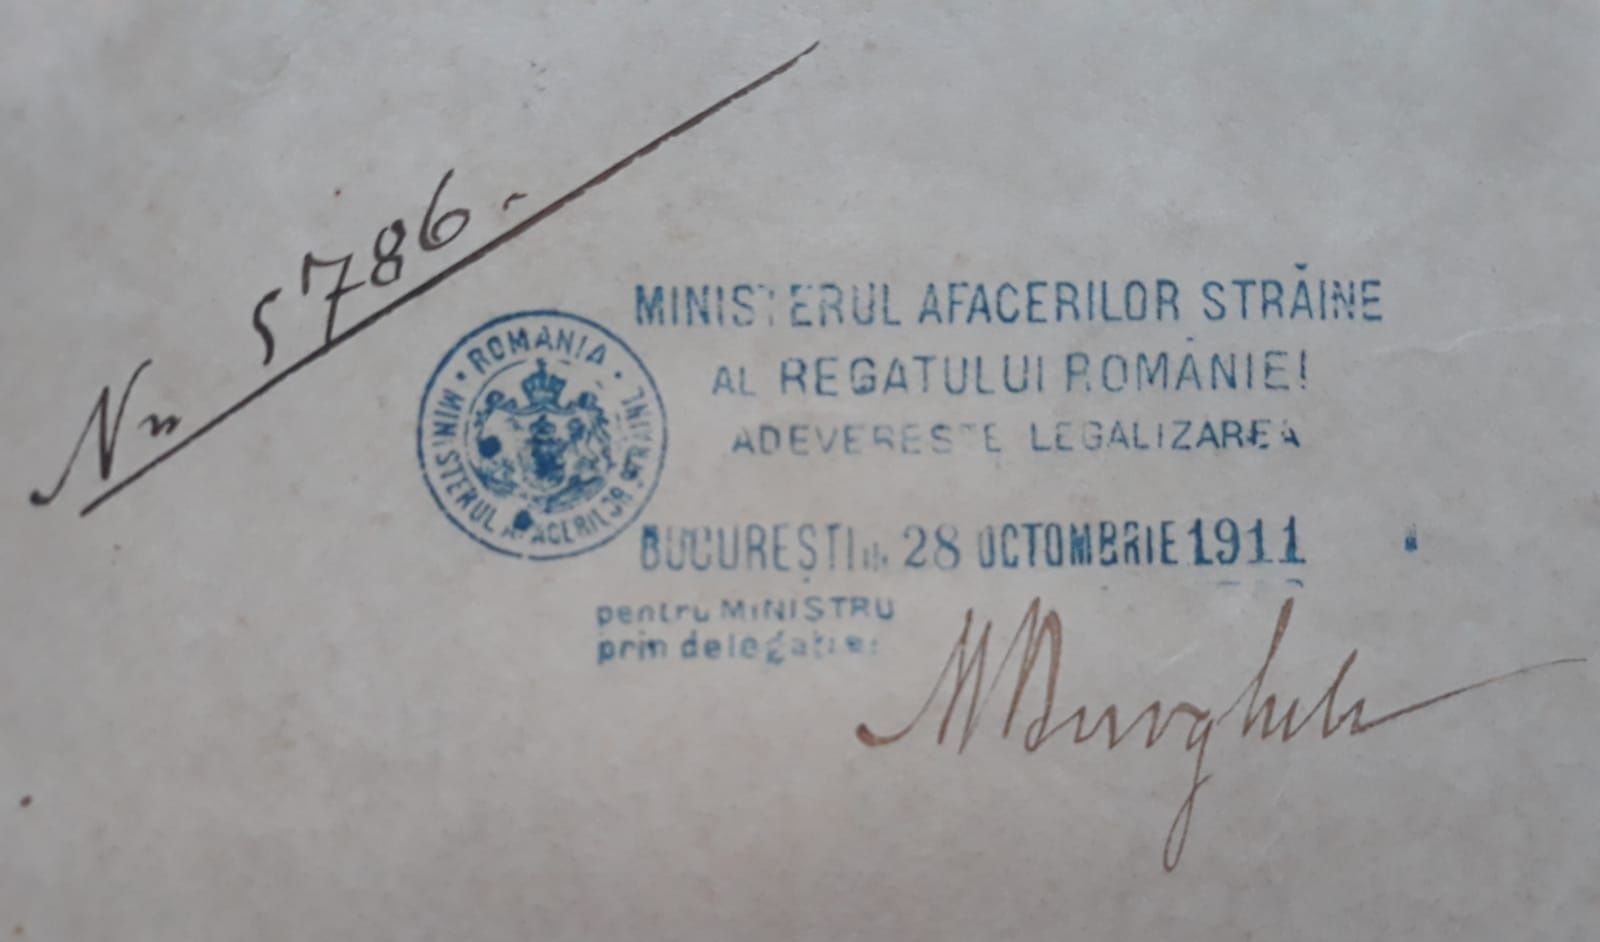 Nr 5786.-
MINISTERUL AFACERILOR STRĂINE
AL REGATULUI ROMÂNIEI
ADEVEREȘTE LEGALIZAREA
ROMANIA
MINISTERUL AFACERILOR STRAINE
BUCUREȘTI 28 OCTOMBRIE 1911
pentru MINISTRU
prin delegație:
MBurghele